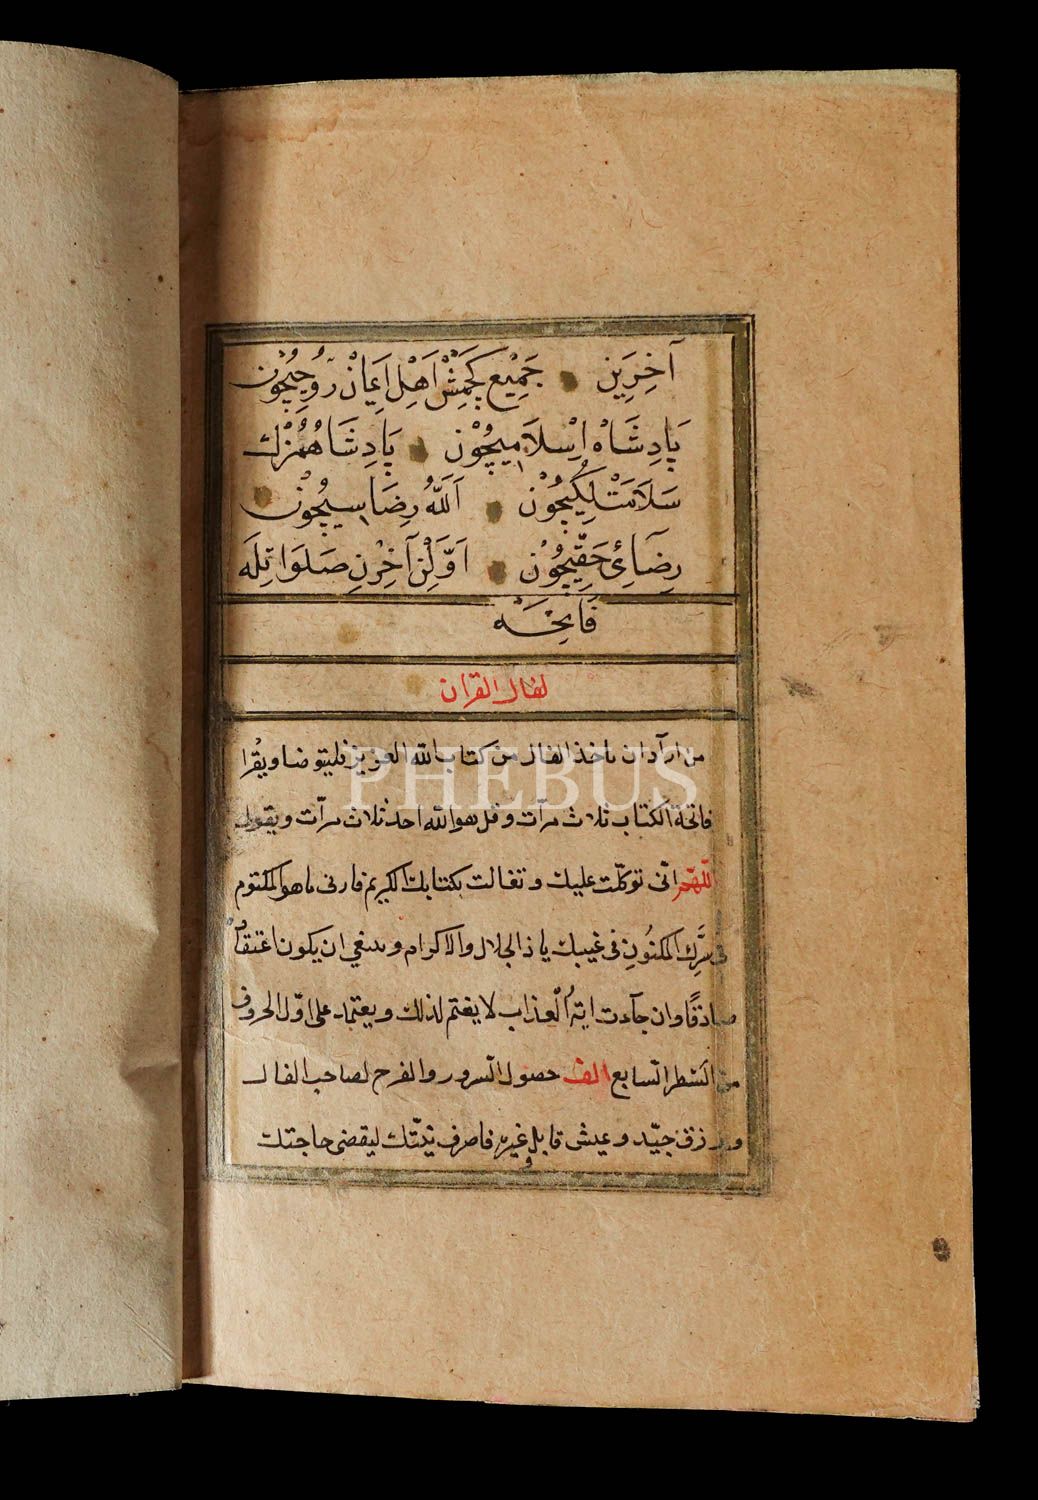 آخِرَيِن جَمِيْعِ كَچْمِشْ اَهْلِ اِيمَانْ رُوحِيچُون
پَادِشَاهْ اِسْلَامِيچُوْن پَادِشَاهُمُزْكْ
سَلَامَتْلِكِيچُوْن اَللّٰهُ رِضَاسِيچُوْن
رِضَائِ حَقِّيچُوْن اَوَّلِنْ آخِرْنِ صَلَوَاتِلَه
فَاتِحَـه
لفال القران
من اراد ان ياخذ الفال من كتاب الله العزيز فليتوضا ويقرا
PHEBUS
فاتحة الكتاب ثلاث مرّات وقل هو الله احد ثلاث مرّات ويقول
اللّهمّ انّى توكّلت عليك وتفالت بكتابك الكريم فارنى ما هو المكتوم
فى سرّك المكنُونِ فى غيبك ياذ الجلال والاكرام وينبغي ان يكون اعتقاد
صادقًا وان جآءت ايةُ العذاب لا يغتم لذلك ويعتمد على اوّل الحروف
من السّطر السّابع الف حصول السّرور والفرح لصاحب الفال
ورزق جيّد وعيش قابل غيره فاصرف نيّتك ليقضى حاجتك